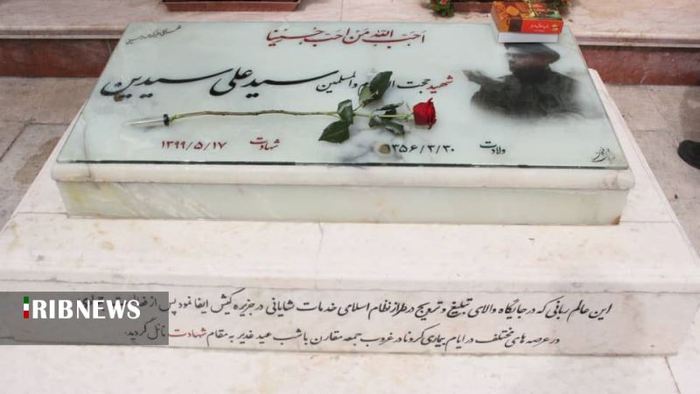 احب الله من احب حسینا
شهید حجت الاسلام والمسلمین سید علی سیدین
ولادت ۱۳۵۶/۳/۳۰
شهادت ۱۳۹۹/۵/۱۷
این عالم ربانی که در جایگاه والای تبلیغ و ترویج در طراز نظام اسلامی خدمات شایانی در جزیره کیش ایفا نمود پس از
در عرصه های مختلف در ایام بیماری کرونا در غروب جمعه مقارن با شب عید غدیر به مقام شهادت نائل گردید.
IRIBNEWS